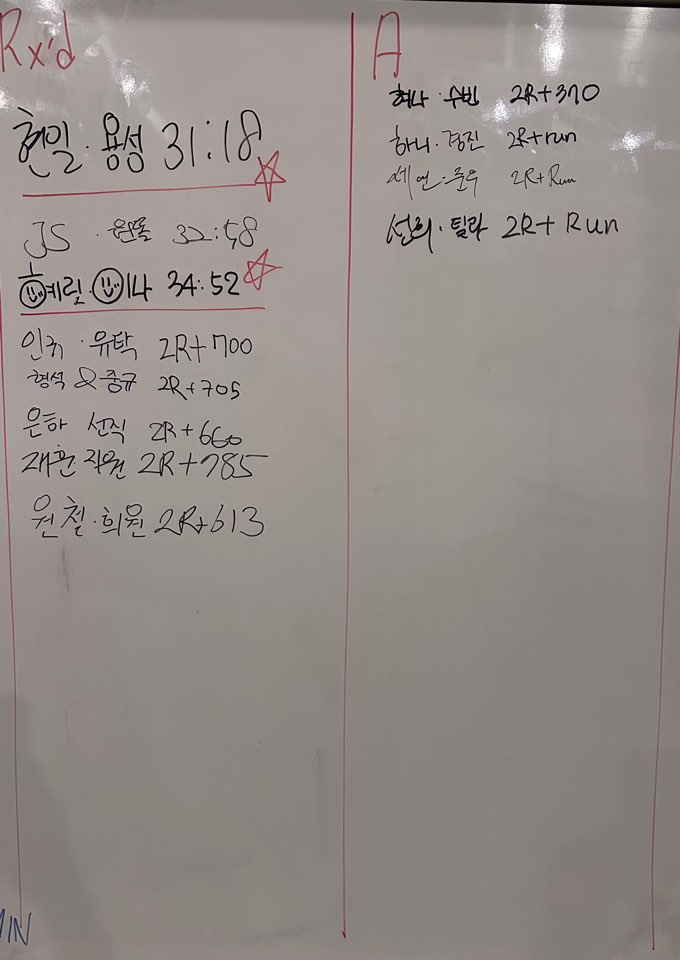 Rx'd
현일·용성 31:18
JS · 원돌 32:58
혜릴·이나 34:52
인휘·유탁 2R+700
형석 & 중규 2R+705
은하 선직 2R+660
재환 직원 2R+785
원철·희원 2R+613
A
혜나·수빈 2R+370
하니·경진 2R+run
세연·준우 2R+Run
선희·틸라 2R+ Run
MIN